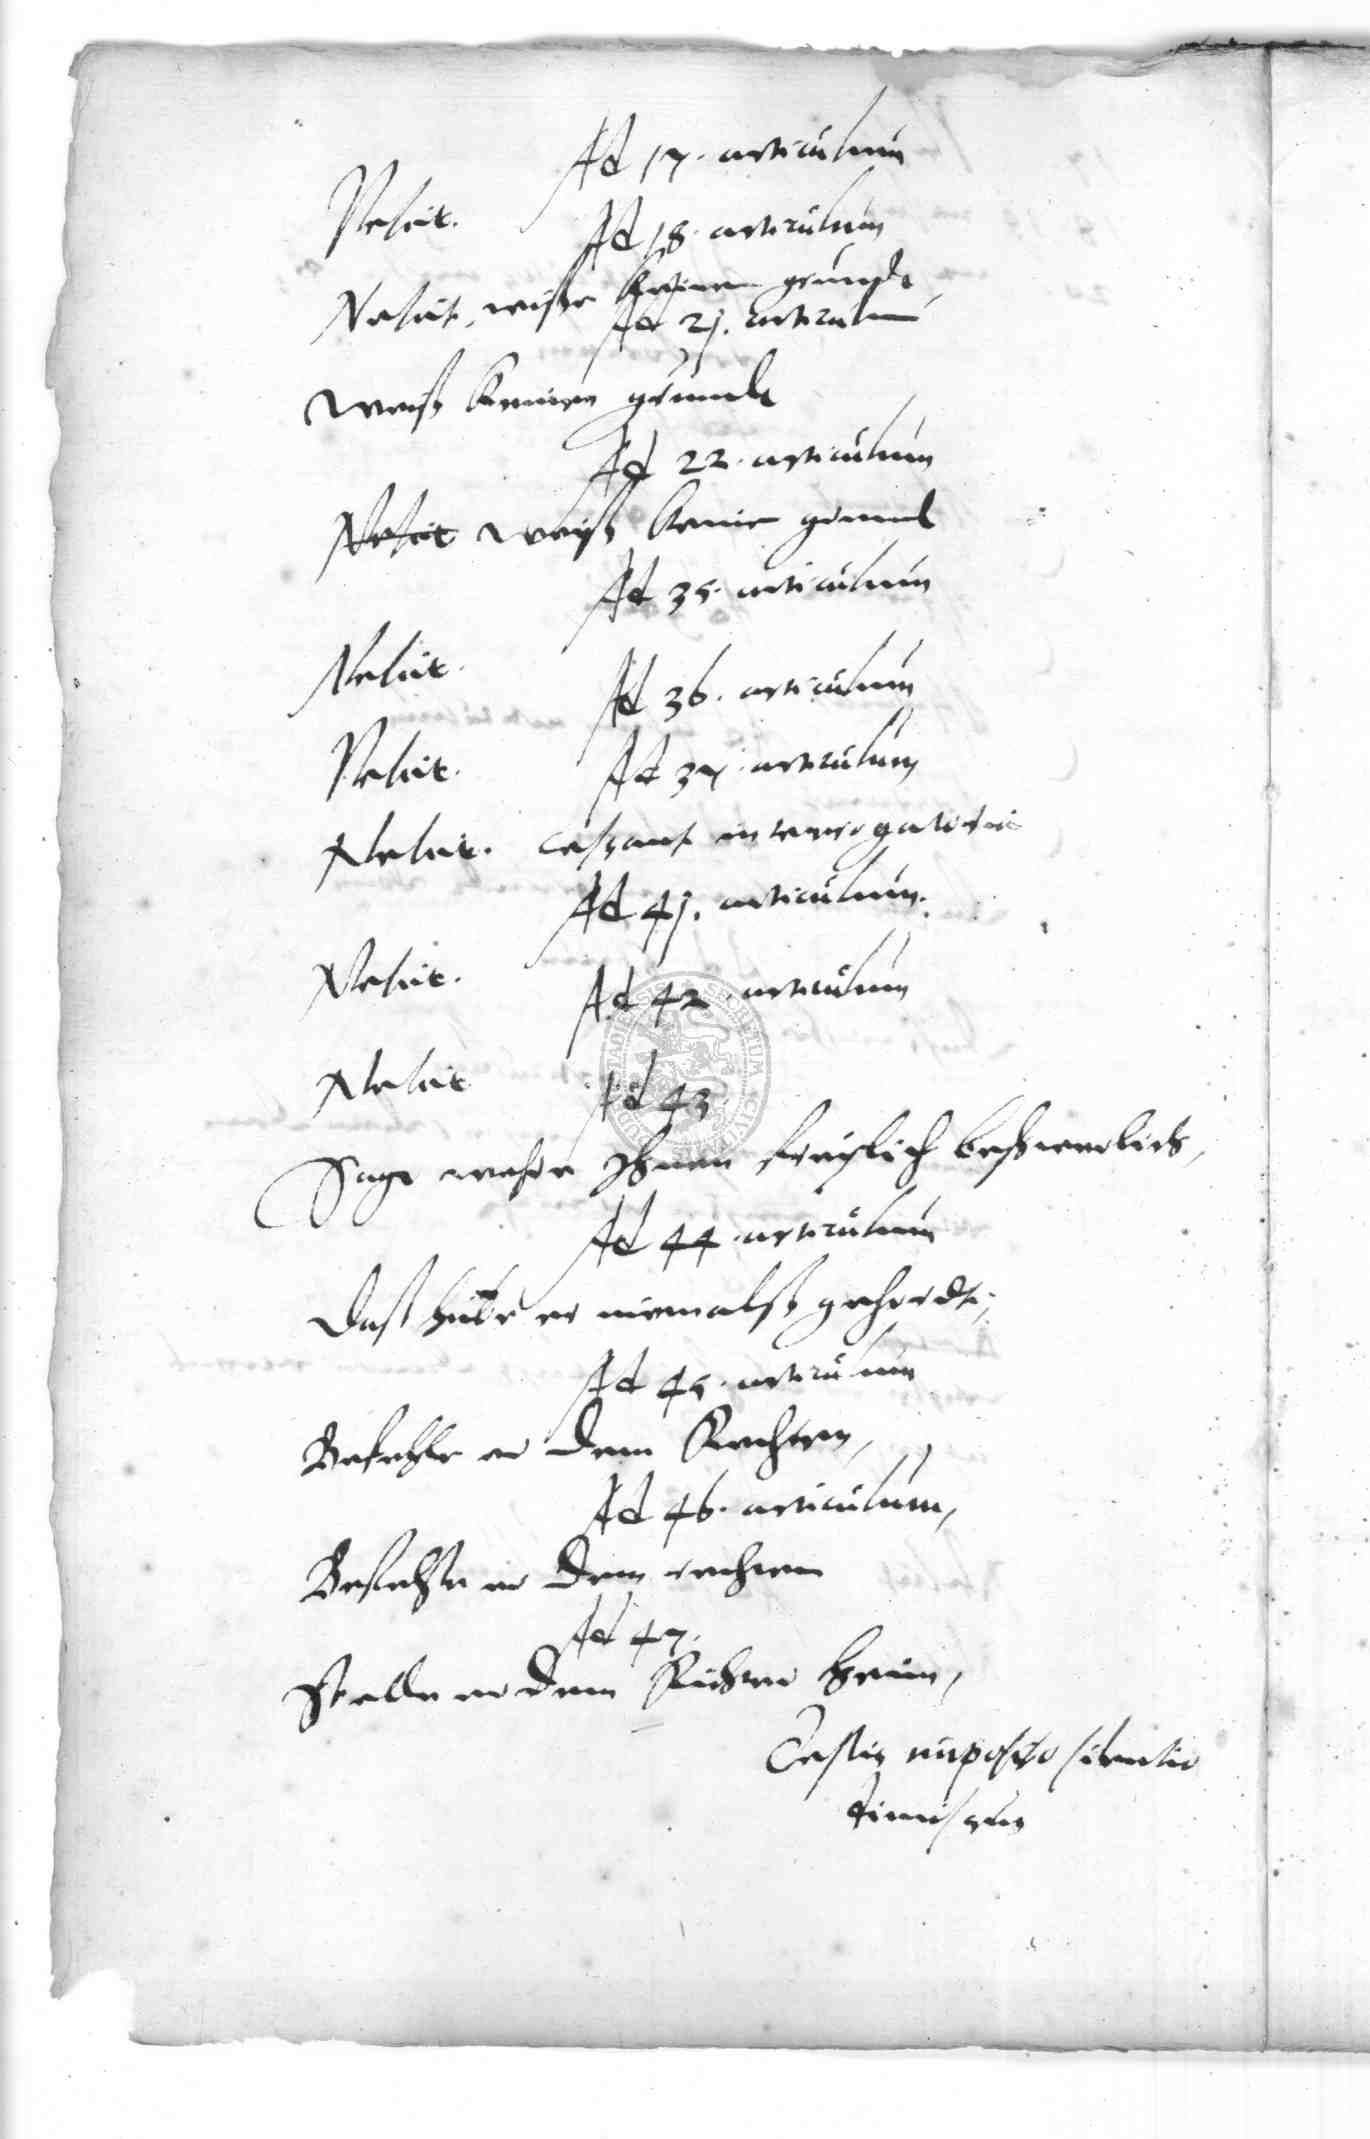 Ad 17. articulum
Nescit.
Ad 18. articulum
Nescit, wisse keinen grundt
Ad 21. articulum
Weiß keinen grundt
Ad 22. articulum
Nescit weiß keinen grundt
Ad 35. articulum
Nescit.
Ad 36. articulum
Nescit.
Ad 37. articulum
Nescit. cessant interrogatoria
Ad 41. articulum.
Nescit.
Ad 42. articulum
Nescit
Ad 43.
Sage wehre Ihnen beschwerlich,
Ad 44. articulum
Daß habe er niemalß gehordt,
Ad 45. articulum
Befehle er dem Rechten,
Ad 46. articulum,
Befehle er dem rechten
Ad 47.
Stelle er dem Richter heim,
Testis imposito silentio
dimissus